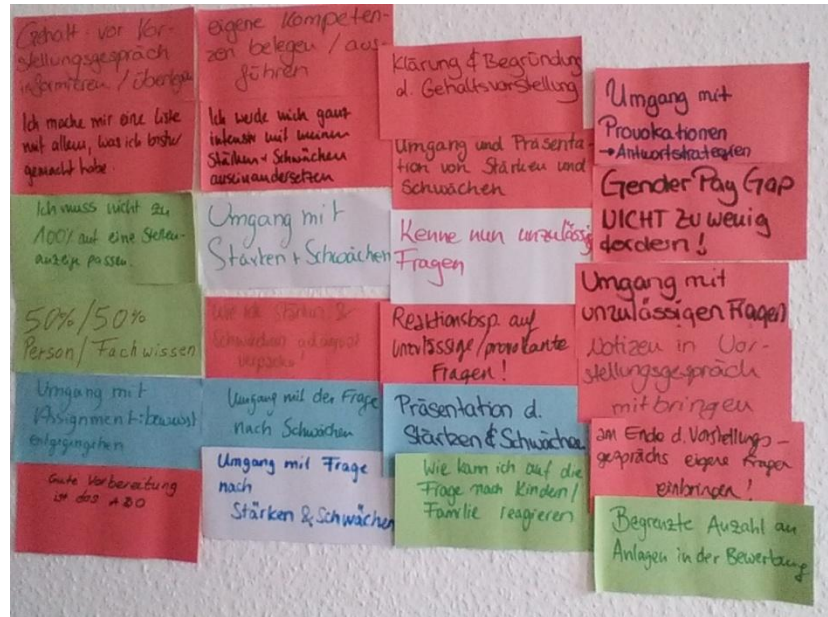 Gehalt vor Vor-
stellungsgespräch
informieren / überlegen
Ich mache mir eine Liste
mit allem, was ich bisher
gemacht habe.
Ich muss nicht zu
100% auf eine Stellen-
anzeige passen.
50%/50%
Person/Fachwissen
Umgang mit
Assignment bewusst
entgegengehen
Gute Vorbereitung
ist das A & O
eigene Kompeten-
zen belegen / aus-
führen
Ich werde mich ganz
intensiv mit meinen
Stärken + Schwächen
auseinandersetzen
Umgang mit
Stärken + Schwächen
Wie ich Stärken &
Schwächen adäquat
Umgang mit der Frage
nach Schwächen
Umgang mit Frage
nach
Stärken & Schwächen
Klärung & Begründung
d. Gehaltsvorstellung
Umgang und Präsenta-
tion von Stärken und
Schwächen
Kenne nun unzulässige
Fragen
Reaktionsbsp. auf
unzulässige/provokante
Fragen!
Präsentation d.
Stärken & Schwächen
Wie kann ich auf die
Frage nach Kindern/
Familie reagieren
Umgang mit
Provokationen
→ Antwortstrategien
Gender Pay Gap
NICHT zu wenig
fordern!
Umgang mit
unzulässigen Fragen
Notizen in Vor-
stellungsgespräch
mitbringen
am Ende d. Vorstellungs-
gesprächs eigene Fragen
einbringen!
Begrenzte Anzahl an
Anlagen in der Bewerbung